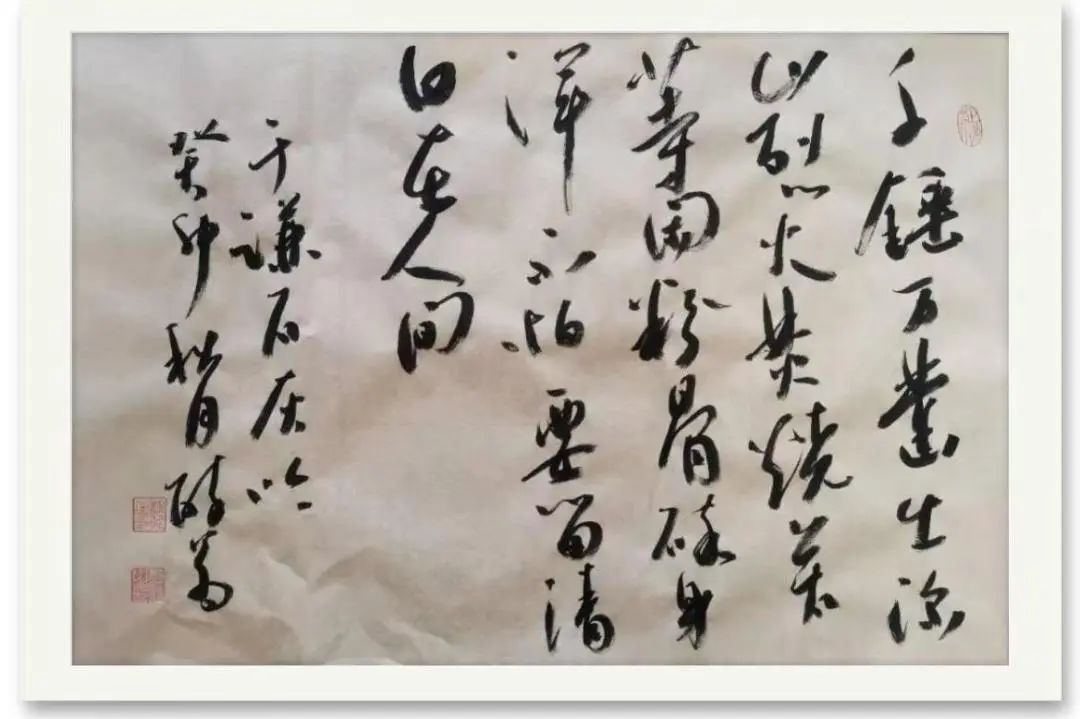 千锤万凿出深
山烈火焚烧若
等闲粉骨碎身
浑不怕要留清
白在人间
于谦石灰吟
癸卯秋月